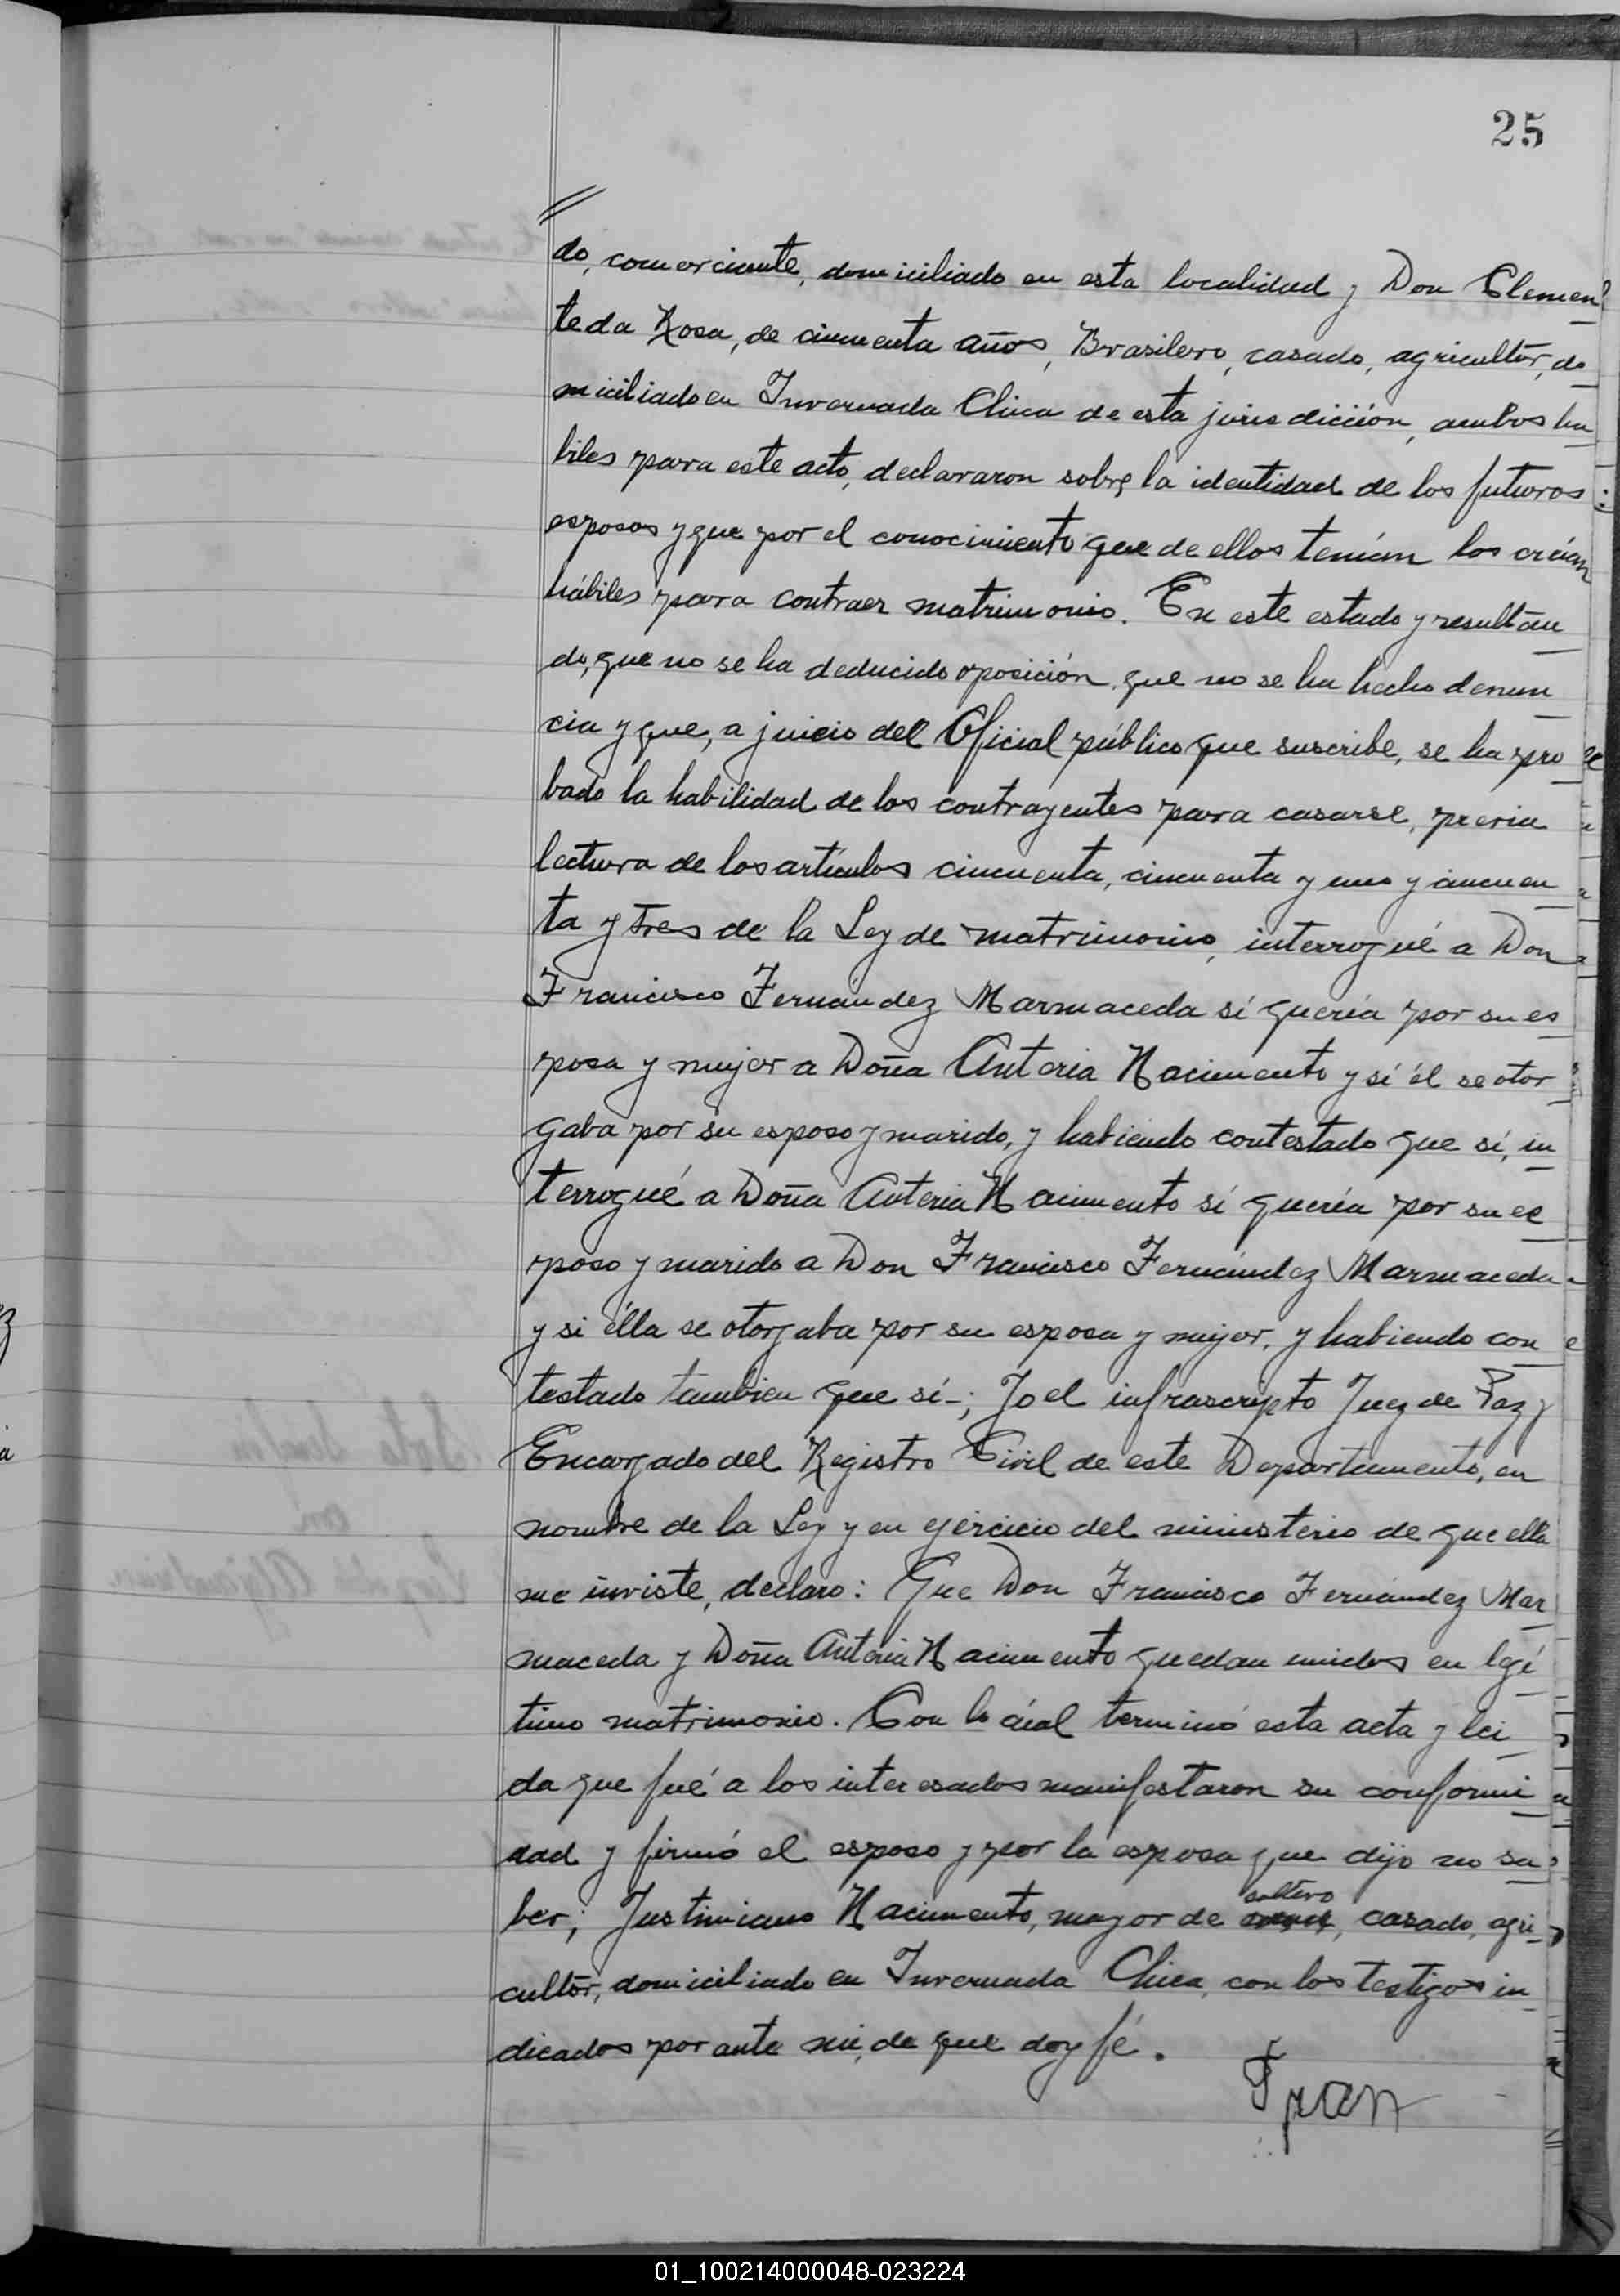 25
do, comerciante, domiciliado en esta localidad y Don Clemen
te da Rosa, de cincuenta años, Brasilero, casado, agricultor, do
miciliado en Invernada Chica de esta jurisdicción, ambos há
biles para este acto, declararon sobre la identidad de los futuros
esposos y que por el conocimiento que de ellos tenían los creían
hábiles para contraer matrimonio. En este estado y resultan
do, que no se ha deducido oposición, que no se ha hecho denun
cia y que, a juicio del Oficial público que suscribe, se ha pro
bado la habilidad de los contrayentes para casarse, previa
lectura de los artículos cincuenta, cincuenta y uno y cincuen
ta y tres de la Ley de matrimonio, interrogué a Don
Francisco Fernandez Marmaceda sí quería por su es
posa y mujer a Doña Anteria Nacimento y sí él se otor
gaba por su esposo y marido, y habiendo contestado que sí, in
terrogué a Doña Anteria Nacimento sí quería por su es
poso y marido a Don Francisco Fernández Marmaceda
y si élla se otorgaba por su esposa y mujer, y habiendo con
testado tambien que sí-; Yo el infrascripto Juez de Paz y
Encargado del Registro Civil de este Departamento, en
nombre de la Ley y en ejercicio del ministerio de que ella
me inviste, declaro: Que Don Francisco Fernández Mar
maceda y Doña Anteria Nacimento quedan unidos en legí
timo matrimonio. Con lo cúal terminó esta acta y lei
da que fué a los interesados manifestaron su conformi
dad y firmó el esposo y por la esposa que dijo no sa
ber; Justiniano Nacimento, mayor de soltero, casado, agri
cultor, domiciliado en Invernada Chica, con los testigos in
dicados por ante mí, de que doy fé.
Fran
01_100214000048-023224